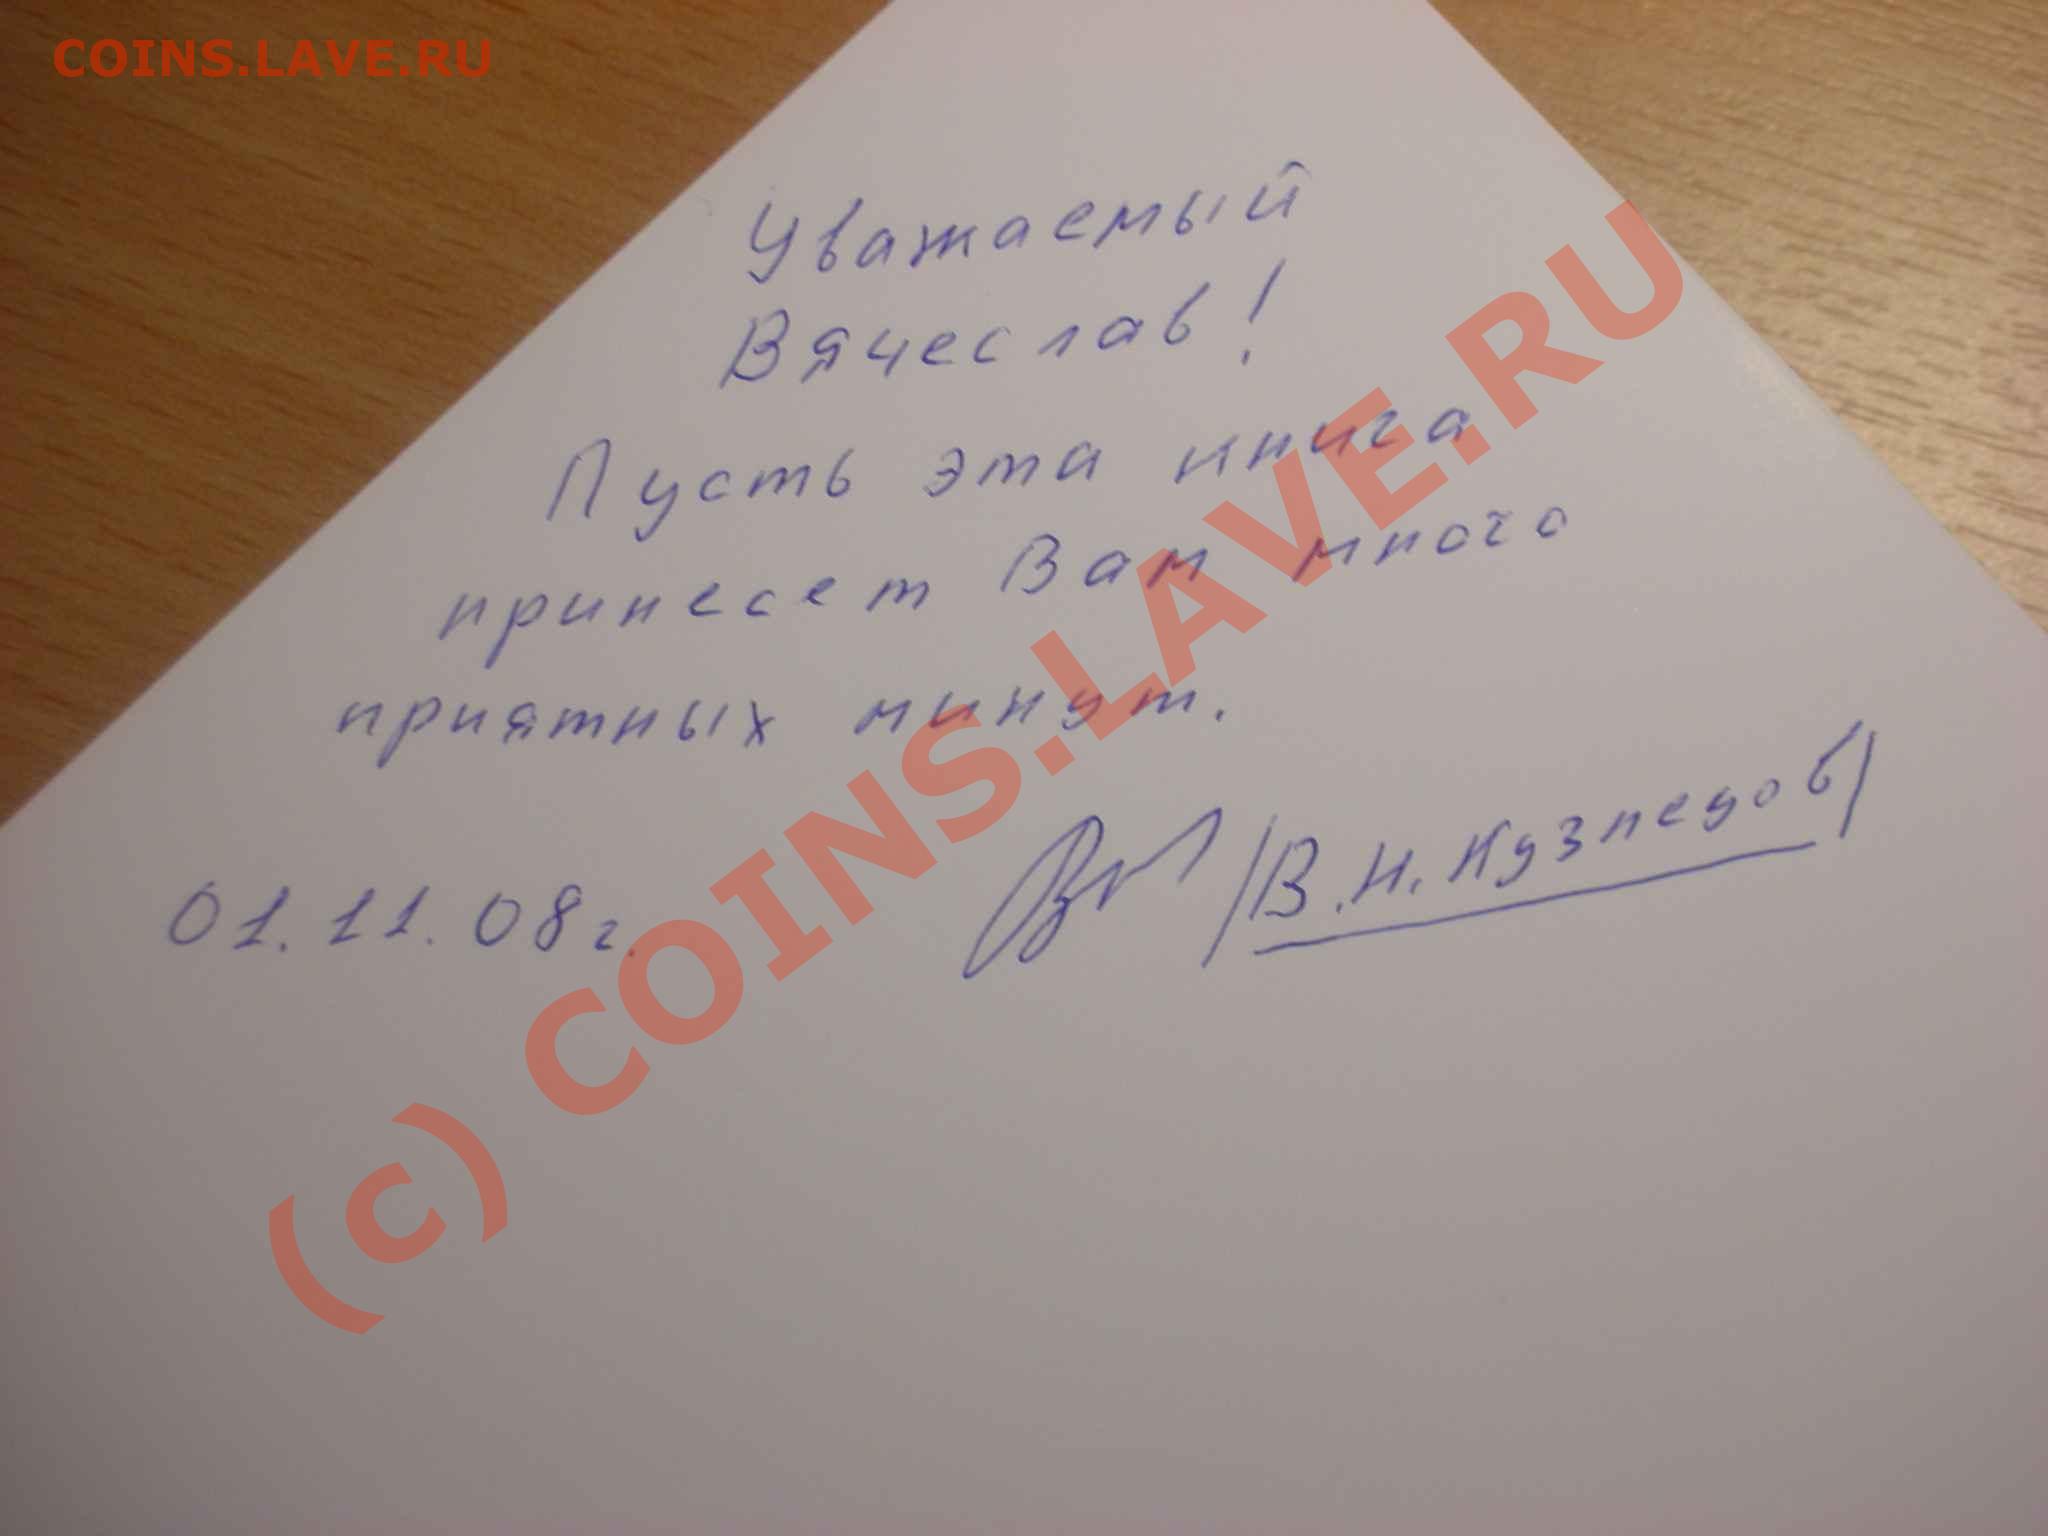 COINS.LAVE.RU
Уважаемый
Вячеслав!
Пусть эта книга
принесет Вам много
приятных минут.
01.11.08г.
/В.Н. Кузнецов/
(c) COINS.LAVE.RU